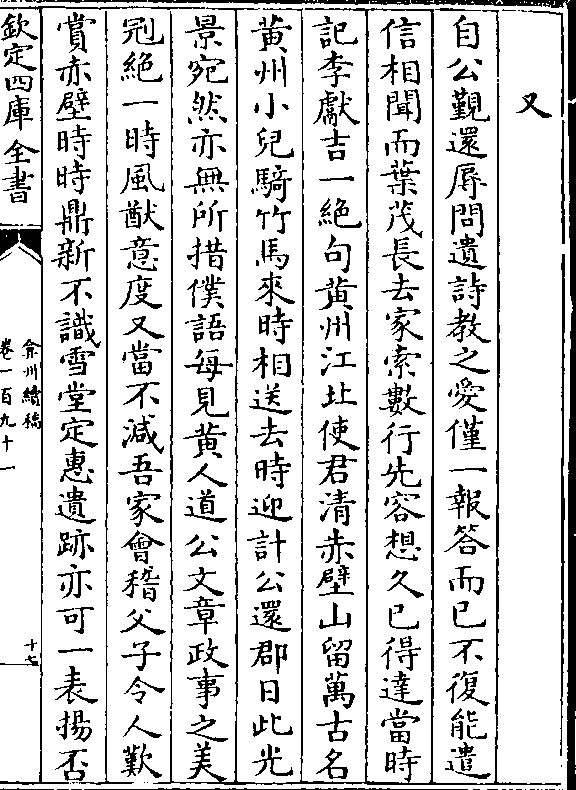 又
自公覲還辱問遺詩教之愛僅一報答而已不復能遣
信相聞而葉茂長去家索數行先容想久已得達當時
記李獻吉一絶句黄州江北使君清赤壁山留萬古名
黄州小兒騎竹馬來時相送去時迎計公還郡日此光
景宛然亦無所措僕語每見黄人道公文章政事之美
冠絶一時風猷意度又當不減吾家會稽父子令人歎
賞赤壁時時鼎新不識雪堂定惠遺跡亦可一表揚否
欽定四庫全書
弇州續稿
卷一百九十一
十七